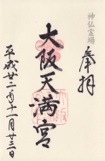 神仏霊場
奉拝
大阪天満宮
平成廿二年十一月廿三日